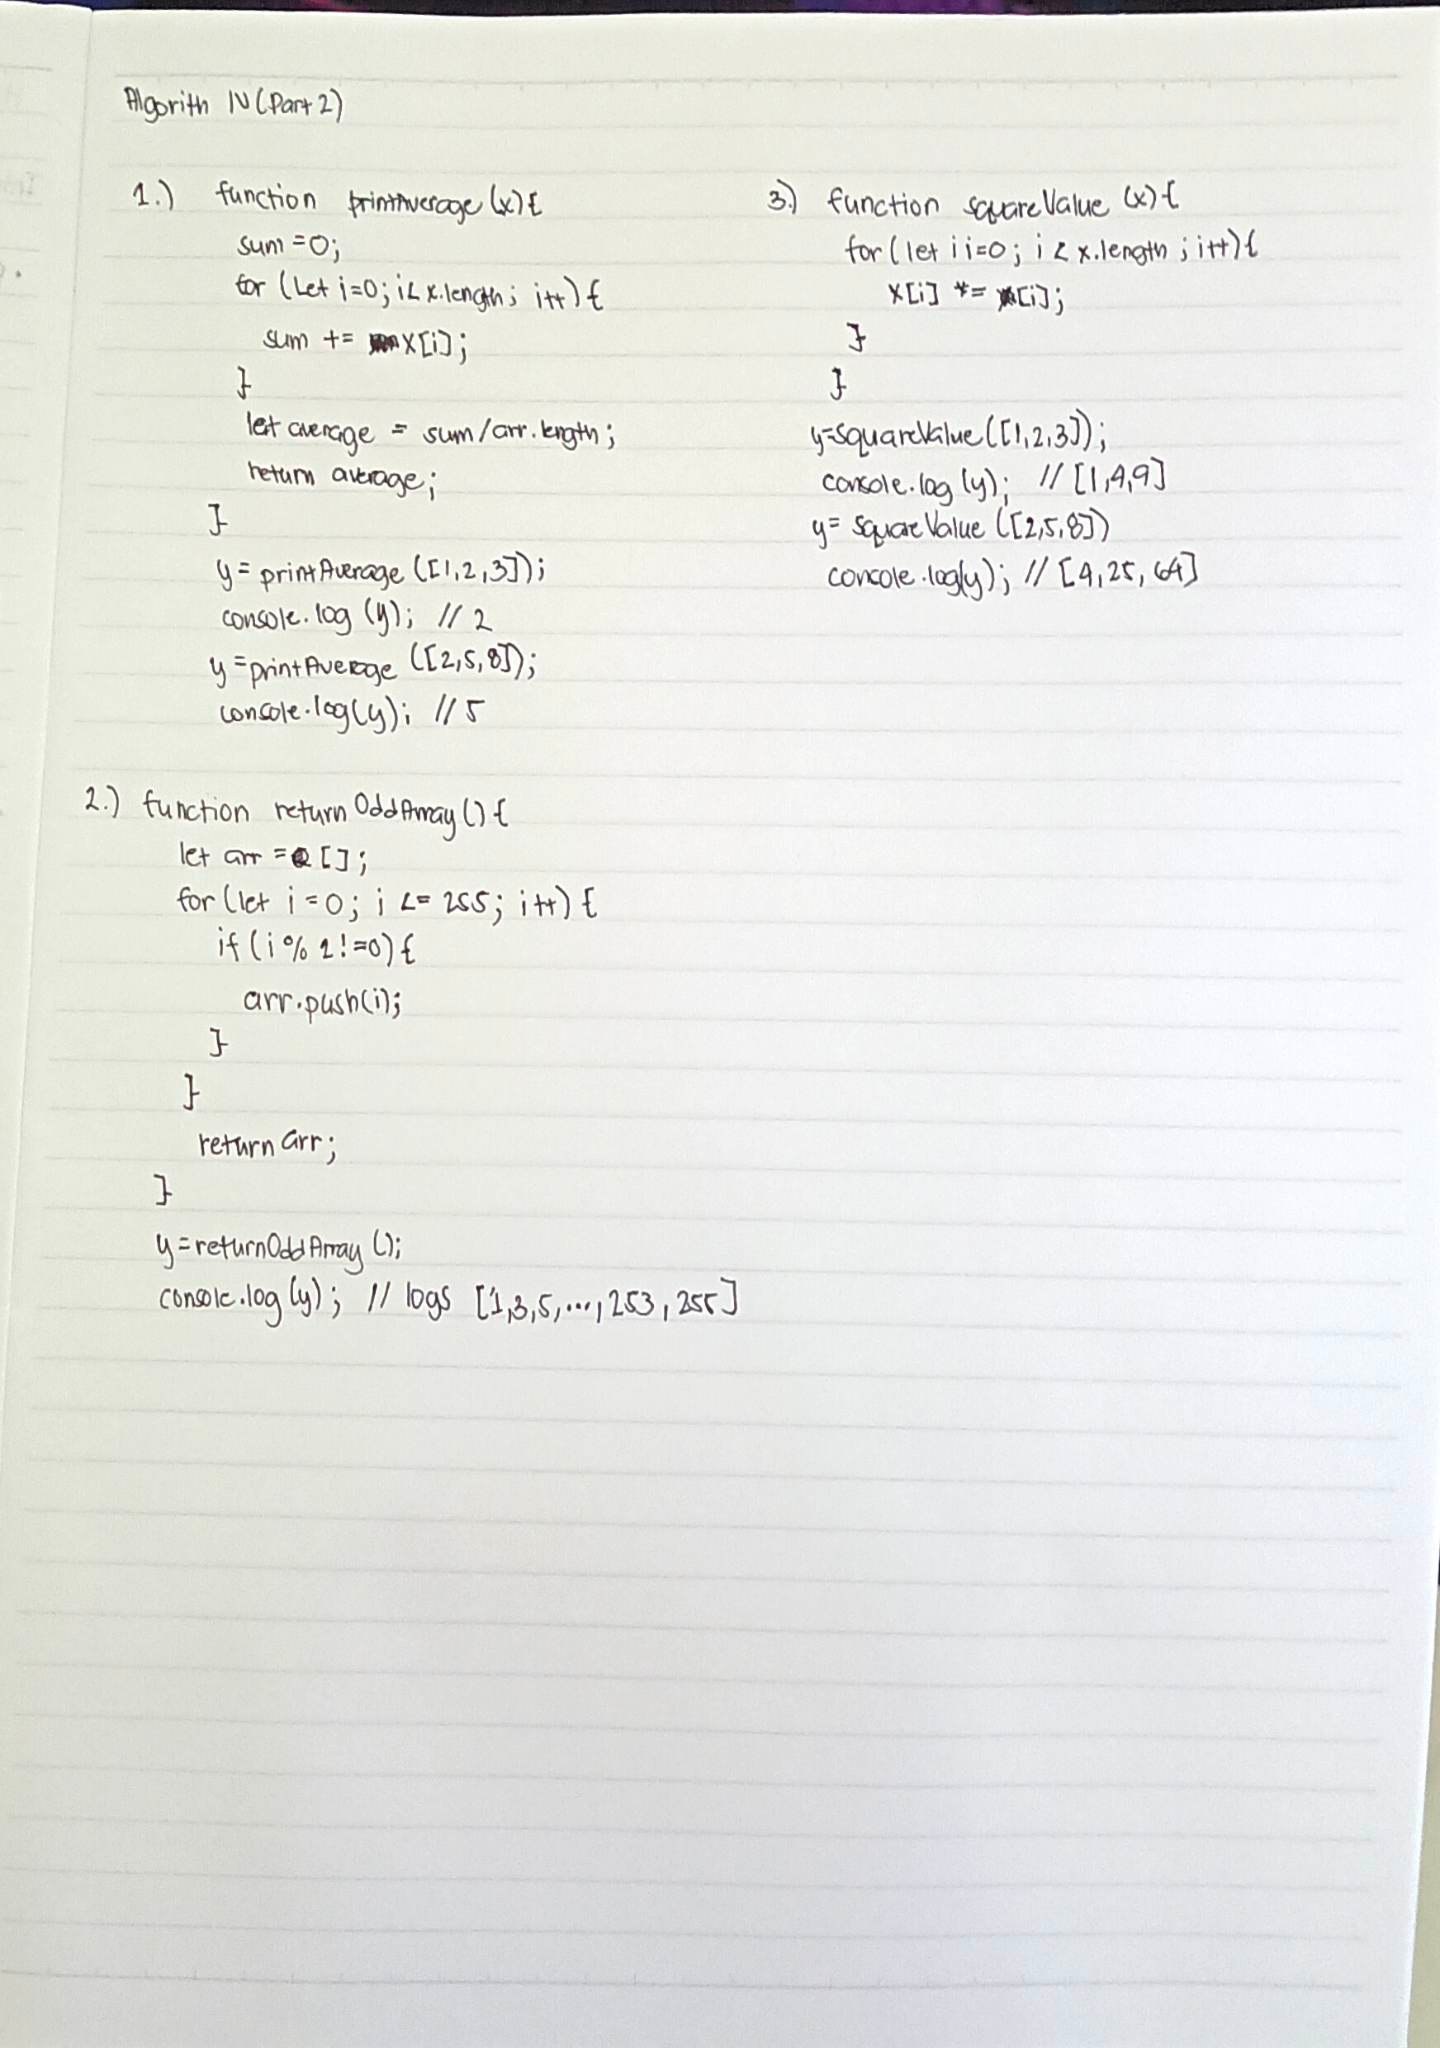 Algorith IV (Part 2)
1.) function printAverage (x) {
sum = 0;
for (Let i=0; i < x.length; i++) {
sum += x[i];
}
let average = sum/arr.length;
return average;
}
y = printAverage ([1,2,3]);
console.log (y); // 2
y = printAverage ([2,5,8]);
console.log(y); // 5
2.) function returnOddArray () {
let arr = [];
for (let i = 0; i <= 255; i++) {
if (i % 2 != 0) {
arr.push(i);
}
}
return arr;
}
y = returnOddArray ();
console.log (y); // logs [1,3,5,...,253,255]
3.) function squareValue (x) {
for (let i i=0; i < x.length; i++) {
x[i] *= x[i];
}
}
y=squareValue([1,2,3]);
console.log (y); // [1,4,9]
y = squareValue ([2,5,8])
console.log(y); // [4,25,64]